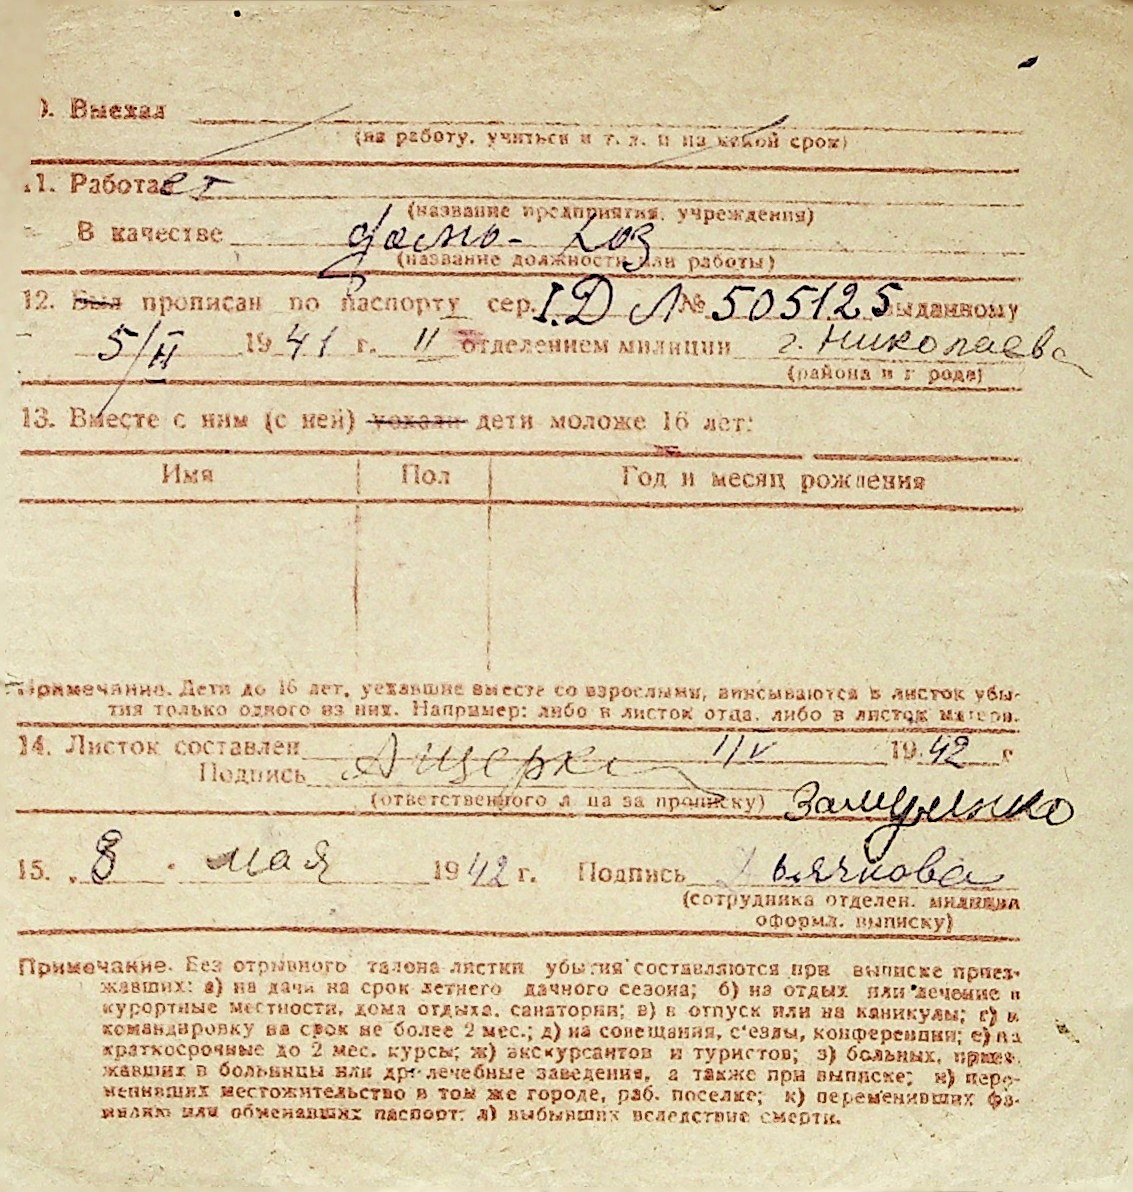 0. Выехал
(на работу, учиться и т. д. и на какой срок)
11. Работает
(название предприятия, учреждения)
В качестве домо-хоз
(название должности или работы)
12. Был прописан по паспорту сер. I.Д Л № 505125 выданному
5/II 1941 г. II отделением милиции г. Николаева
(района и г рода)
13. Вместе с ним (с ней) уехали дети моложе 16 лет:
Имя Пол Год и месяц рождения
Примечание. Дети до 16 лет, уехавшие вместе со взрослыми, вписываются в листок убы-
тия только одного из них. Например: либо в листок отца, либо в листок матери.
14. Листок составлен 1942 г
Подпись
(ответственного л ца за прописку)
15. 8 мая 1942 г. Подпись Дьячкова
(сотрудника отделен. милиции
оформл. выписку)
Примечание. Без отрывного талона листки убытия составляются при выписке приез-
жавших: а) на дачи на срок летнего дачного сезона; б) на отдых или лечение в
курортные местности, дома отдыха, санатории; в) в отпуск или на каникулы; г) в
командировку на срок не более 2 мес.; д) на совещания, с'езды, конференции; е) на
краткосрочные до 2 мес. курсы; ж) экскурсантов и туристов; з) больных, приез-
жавших в больницы или др. лечебные заведения, а также при выписке; и) пере-
менивших местожительство в том же городе, раб. поселке; к) переменивших фа-
милию или обменавших паспорт; л) выбывших вследствие смерти.